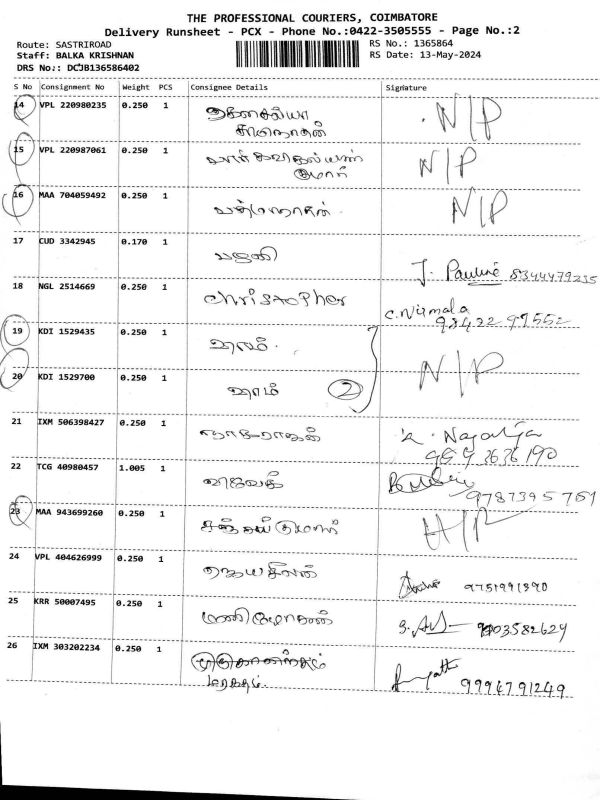 THE PROFESSIONAL COURIERS, COIMBATORE
Delivery Runsheet - PCX - Phone No.:0422-3505555 - Page No.:2
Route: SASTRIROAD
RS No.: 1365864
Staff: BALKA KRISHNAN
RS Date: 13-May-2024
DRS No.: DCJB136586402
S No Consignment No Weight PCS Consignee Details Signature
14 VPL 220980235 0.250 1 N/P
15 VPL 220987061 0.250 1 N/P
குமார்
16 MAA 704059492 0.250 1 பத்மநாதன் N/P
17 CUD 3342945 0.170 1 பழனி J. Pauline 8344479235
18 NGL 2514669 0.250 1 Christopher C. Nirmala
98422 99552
19 KDI 1529435 0.250 1 N/P
20 KDI 1529700 0.250 1 ராம் 2
21 IXM 506398427 0.250 1 நாகராஜன்
22 TCG 40980457 1.005 1 9787395761
23 MAA 943699260 0.250 1 சஞ்சய் குமார்
24 VPL 404626999 0.250 1 ஜெயசீலன் 9751991290
25 KRR 50007495 0.250 1 மணிமோகன்
26 IXM 303202234 0.250 1 9994791249